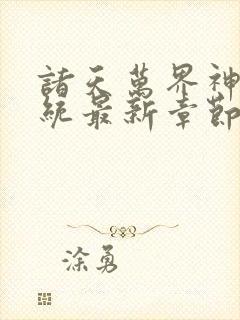 諸天萬界神
統最新章節
涂勇